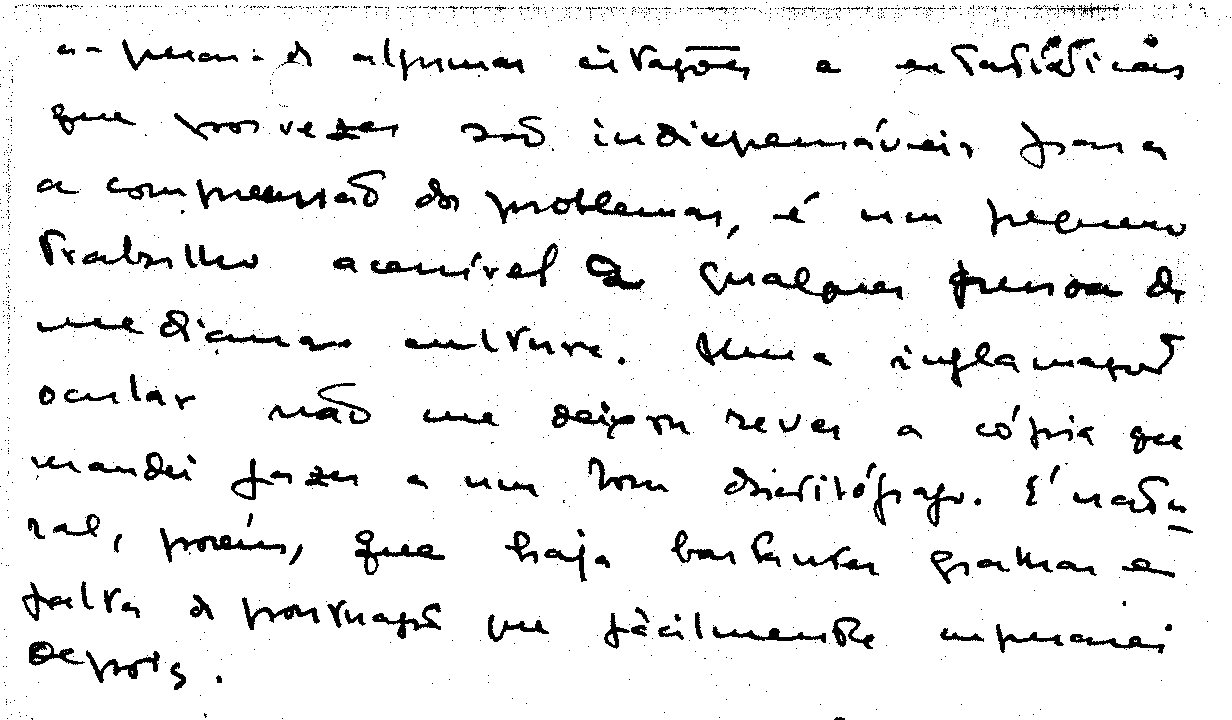 apesar de algumas citações e estatísticas
que por vezes são indispensáveis para
a compreensão dos problemas, é um pequeno
trabalho acessível a qualquer pessoa de
mediana cultura. Uma inflamação
ocular não me deixou rever a cópia que
mandei fazer a um bom dactilógrafo. É natu-
ral, porém, que haja bastantes gralhas e
falta de pontuação que fàcilmente suprirei
depois.